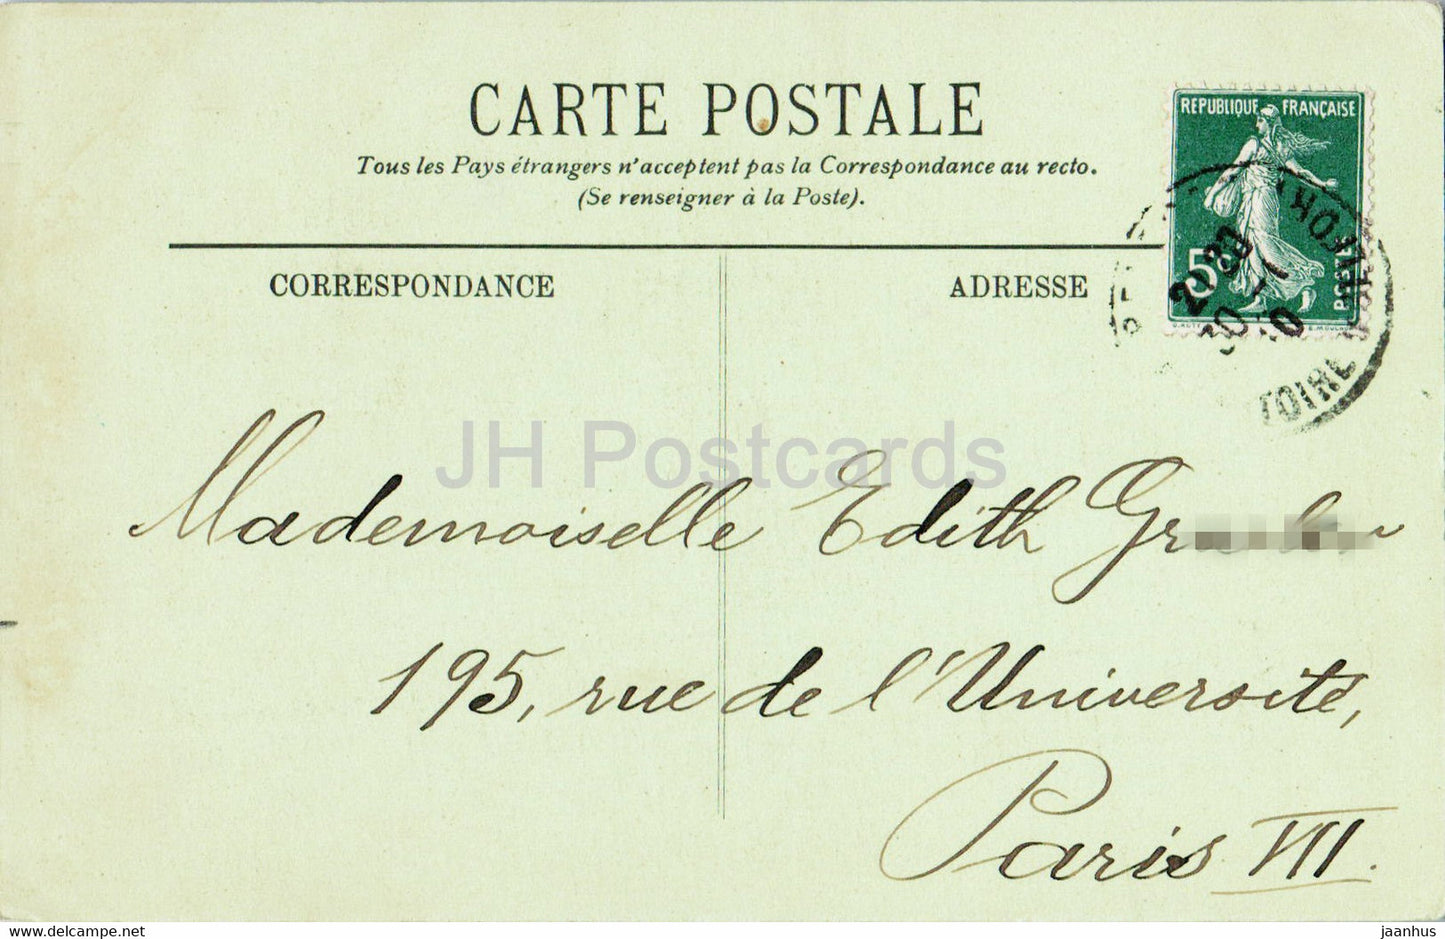 CARTE POSTALE
Tous les Pays étrangers n'acceptent pas la Correspondance au recto.
(Se renseigner à la Poste).
REPUBLIQUE FRANÇAISE
5
POSTES
CORRESPONDANCE
ADRESSE
JH Postcards
Mademoiselle Edith
195, rue de l'Université,
Paris VII.
https://www.delcampe.net
jaanhus